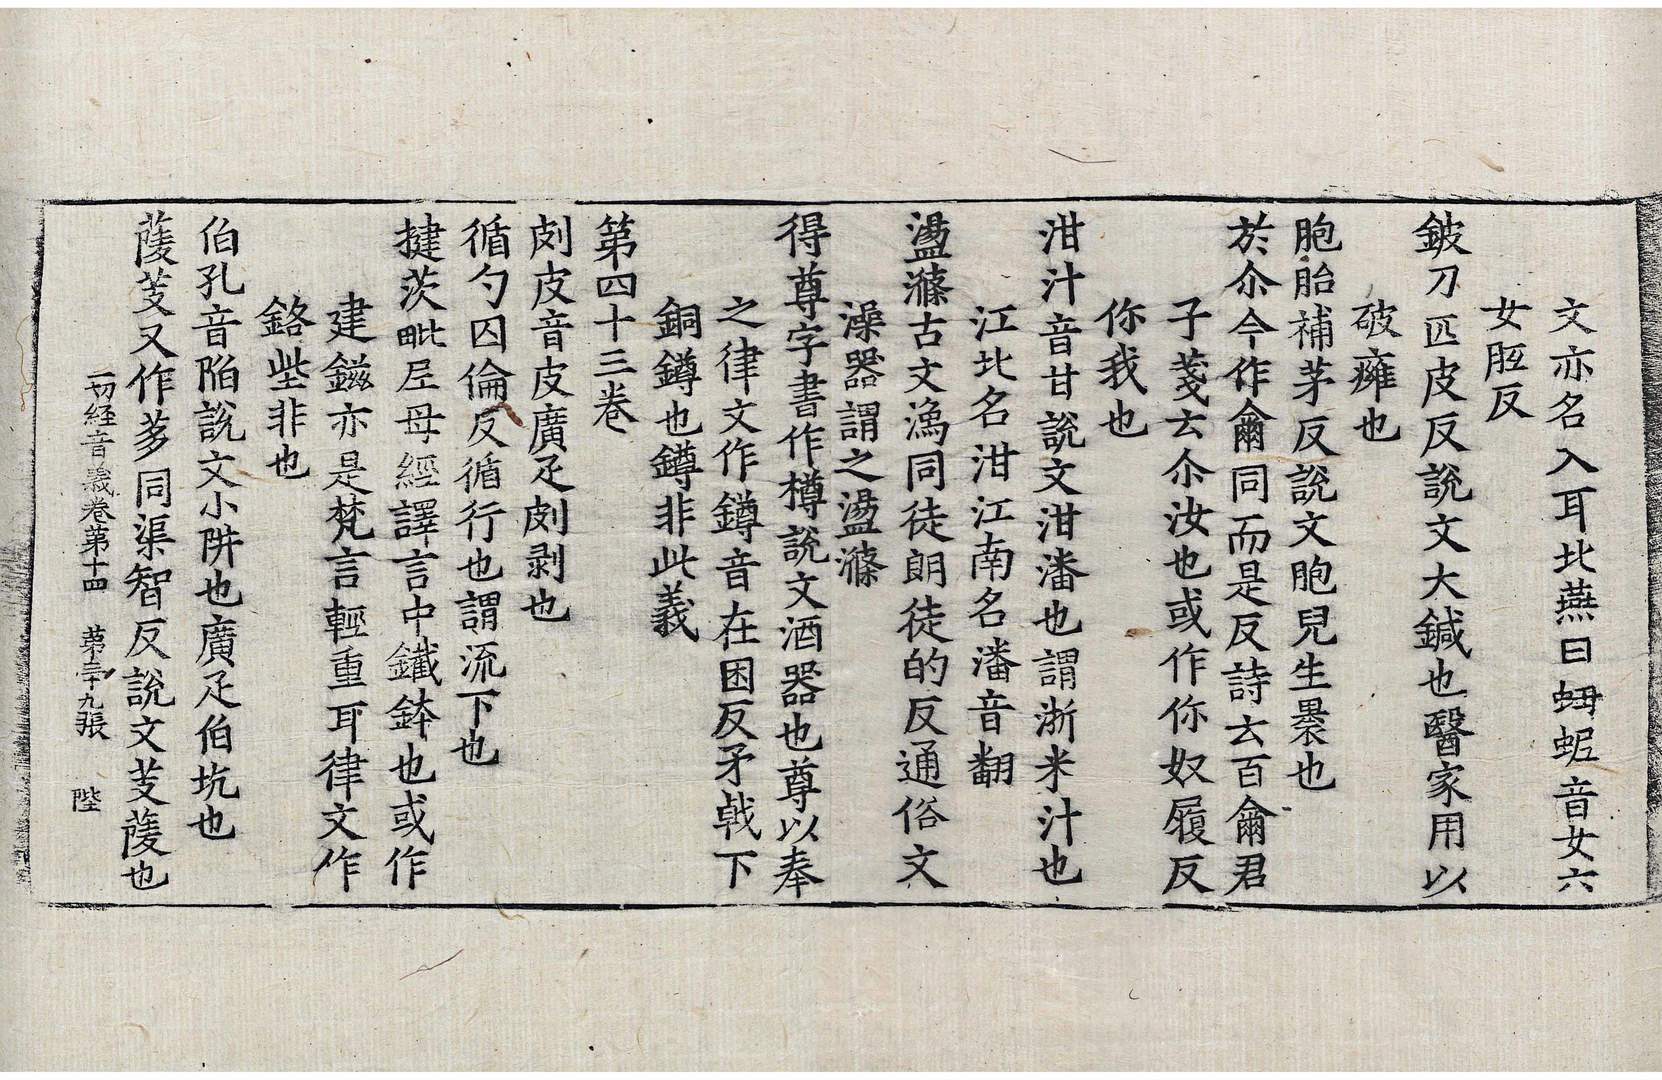 文亦名入耳北燕曰蚭蚭音女六
女胝反
鈹刀匹皮反說文大鍼也醫家用以
破癰也
胞胎補茅反說文胞兒生褁也
於尒今作爾同而是反詩云百爾君
子箋云尒汝也或作你奴履反
你我也
泔汁音甘說文泔潘也謂淅米汁也
江北名泔江南名潘音翻
盪滌古文潒同徒朗徒的反通俗文
澡器謂之盪滌
得尊字書作樽說文酒器也尊以奉
之律文作鐏音在困反矛戟下
銅鐏也鐏非此義
第四十三卷
皮音皮廣疋剝也
循勺囚倫反循行也謂流下也
揵茨毗尼母經譯言中鐵鉢也或作
建鎡亦是梵言輕重耳律文作
鉻㘹非也
伯孔音陷說文小阱也廣疋伯坑也
蓤芰又作茤同渠智反說文芰蓤也
一切經音義卷第十四 第三十九張 陛